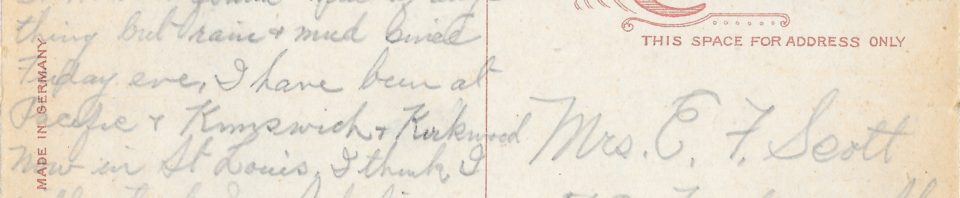 thing but rain & mud since
Friday eve, I have been at
Pacific & Kimswich & Kirkwood
Now in St Louis, I think I
MADE IN GERMANY
THIS SPACE FOR ADDRESS ONLY
Mrs. E. F. Scott